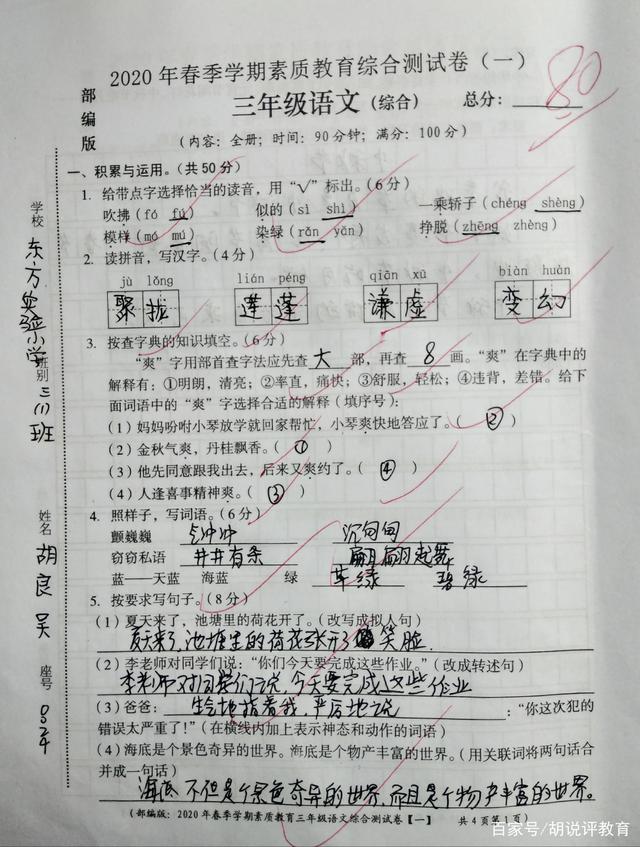 2020年春季学期素质教育综合测试卷（一）
部编版
三年级语文（综合） 总分：80
（内容：全册；时间：90分钟；满分：100分）
一、积累与运用。（共50分）
1. 给带点字选择恰当的读音，用“√”标出。（6分）
吹拂（fó fú） 似的（sì shì） 一乘轿子（chéng shèng）
模样（mó mú） 染绿（rǎn yǎn） 挣脱（zhēng zhèng）
2. 读拼音，写汉字。（4分）
jù lǒng lián péng qiān xū biàn huàn
聚拢 莲蓬 谦虚 变幻
3. 按查字典的知识填空。（6分）
“爽”字用部首查字法应先查 大 部，再查 8 画。“爽”在字典中的
解释有：①明朗，清亮；②率直，痛快；③舒服，轻松；④违背，差错。给下
面词语中的“爽”字选择合适的解释（填序号）：
（1）妈妈吩咐小琴放学就回家帮忙，小琴爽快地答应了。（②）
（2）金秋气爽，丹桂飘香。（①）
（3）他先同意跟我出去，后来又爽约了。（④）
（4）人逢喜事精神爽。（③）
4. 照样子，写词语。（6分）
颤巍巍 气冲冲 沉甸甸
窃窃私语 井井有条 翩翩起舞
蓝——天蓝 海蓝 绿 草绿 碧绿
5. 按要求写句子。（8分）
（1）夏天来了，池塘里的荷花开了。（改写成拟人句）
夏天来了，池塘里的荷花张开了笑脸.
（2）李老师对同学们说：“你们今天要完成这些作业。”（改成转述句）
李老师对同学们说，今天要完成这些作业
（3）爸爸： 生气地指着我，严厉地说 ：“你这次犯的
错误太严重了！”（在横线内加上表示神态和动作的词语）
（4）海底是个景色奇异的世界。海底是个物产丰富的世界。（用关联词将两句话合
并成一句话）
海底不但是个景色奇异的世界，而且是个物产丰富的世界。
（部编版：2020年春季学期素质教育三年级语文综合测试卷【一】 共4页第1页）
学校 东方实验小学
班别 三(1)班
姓名 胡良昊
座号 0024
百家号/胡说评教育